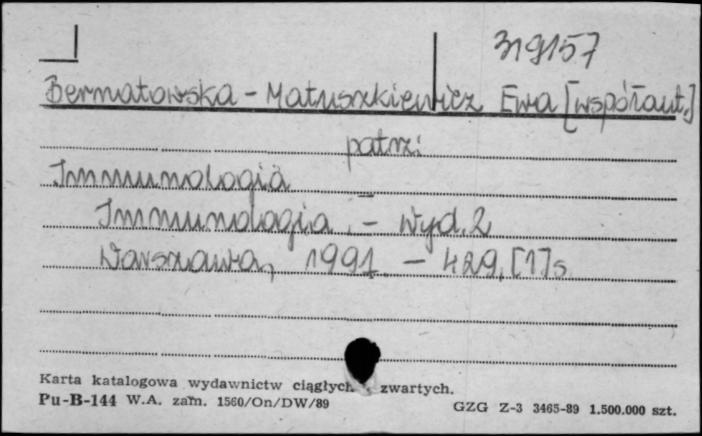 319157
Bernatowska-Matuszkiewicz Ewa [współaut.]
patrz:
Immunologia
Immunologia. - Wyd. 2
Warszawa, 1991. - 429, [1] s
Karta katalogowa wydawnictw ciągłych zwartych.
Pu-B-144 W.A. zam. 1560/On/DW/89
GZG Z-3 3465-89 1.500.000 szt.